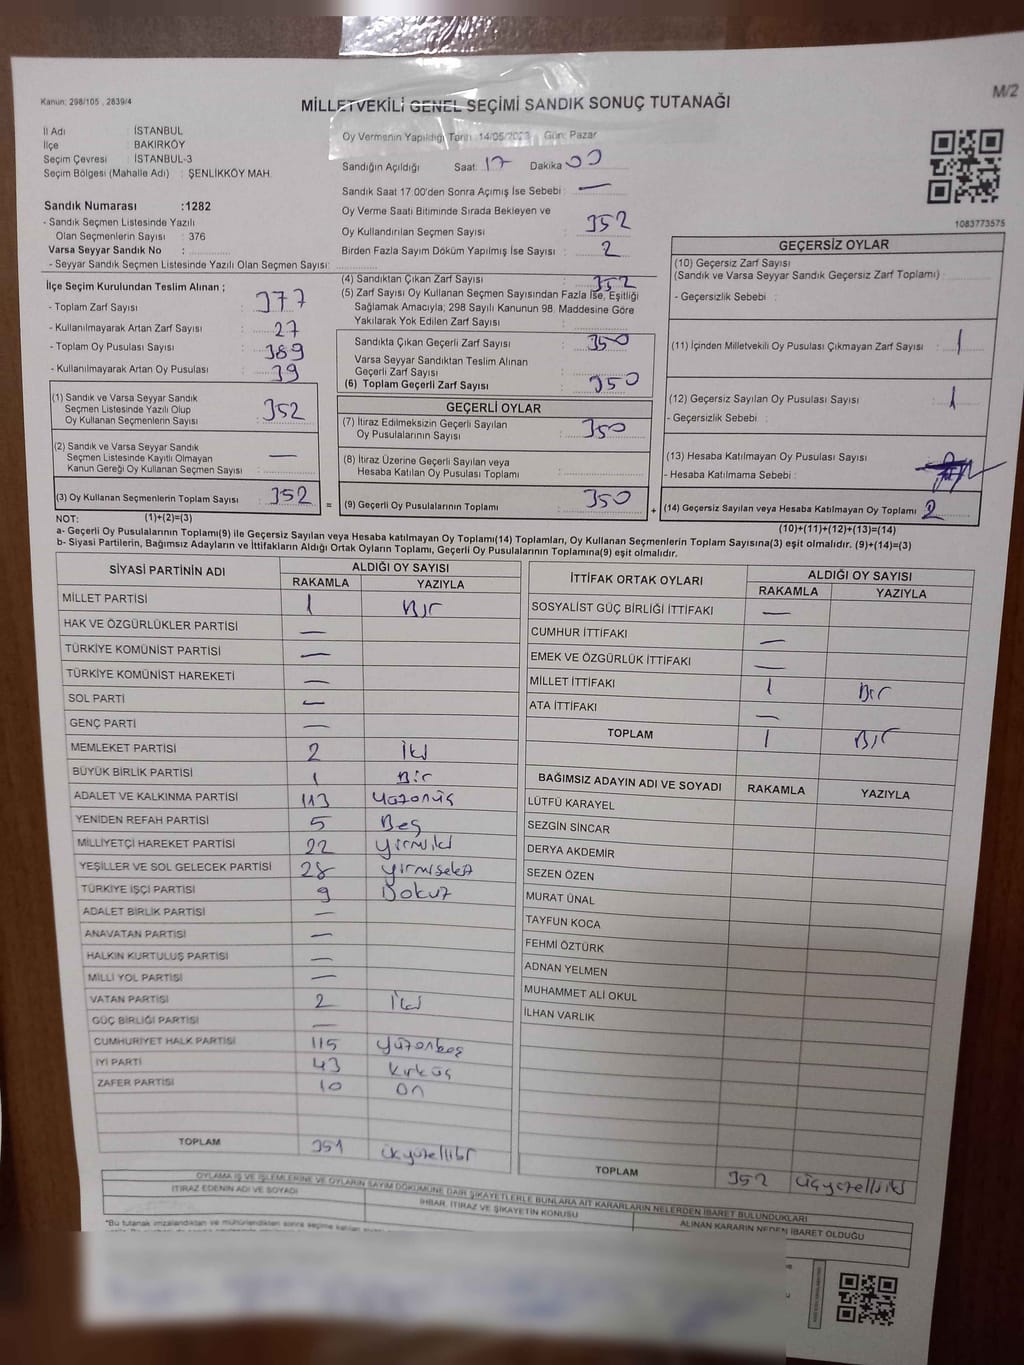 Kanun: 298/105 , 2839/4
M/2
MİLLETVEKİLİ GENEL SEÇİMİ SANDIK SONUÇ TUTANAĞI
İl Adı : İSTANBUL
İlçe : BAKIRKÖY
Seçim Çevresi : İSTANBUL-3
Seçim Bölgesi (Mahalle Adı) : ŞENLİKKÖY MAH.
Sandık Numarası :1282
- Sandık Seçmen Listesinde Yazılı
Olan Seçmenlerin Sayısı : 376
Varsa Seyyar Sandık No :
- Seyyar Sandık Seçmen Listesinde Yazılı Olan Seçmen Sayısı:
Oy Vermenin Yapıldığı Tarih: 14/05/2023 Gün: Pazar
Sandığın Açıldığı Saat: 17 Dakika: 00
Sandık Saat 17.00'den Sonra Açımış İse Sebebi : —
Oy Verme Saati Bitiminde Sırada Bekleyen ve
Oy Kullandırılan Seçmen Sayısı : 352
Birden Fazla Sayım Döküm Yapılmış İse Sayısı : 2
1083773575
İlçe Seçim Kurulundan Teslim Alınan ;
- Toplam Zarf Sayısı : 377
- Kullanılmayarak Artan Zarf Sayısı : 27
- Toplam Oy Pusulası Sayısı : 389
- Kullanılmayarak Artan Oy Pusulası : 39
(1) Sandık ve Varsa Seyyar Sandık
Seçmen Listesinde Yazılı Olup
Oy Kullanan Seçmenlerin Sayısı : 352
(2) Sandık ve Varsa Seyyar Sandık
Seçmen Listesinde Kayıtlı Olmayan
Kanun Gereği Oy Kullanan Seçmen Sayısı : —
(3) Oy Kullanan Seçmenlerin Toplam Sayısı : 352
(4) Sandıktan Çıkan Zarf Sayısı : 352
(5) Zarf Sayısı Oy Kullanan Seçmen Sayısından Fazla İse, Eşitliği
Sağlamak Amacıyla; 298 Sayılı Kanunun 98. Maddesine Göre
Yakılarak Yok Edilen Zarf Sayısı :
Sandıkta Çıkan Geçerli Zarf Sayısı : 350
Varsa Seyyar Sandıktan Teslim Alınan
Geçerli Zarf Sayısı :
(6) Toplam Geçerli Zarf Sayısı : 350
GEÇERLİ OYLAR
(7) İtiraz Edilmeksizin Geçerli Sayılan
Oy Pusulalarının Sayısı : 350
(8) İtiraz Üzerine Geçerli Sayılan veya
Hesaba Katılan Oy Pusulası Toplamı :
= (9) Geçerli Oy Pusulalarının Toplamı : 350
GEÇERSİZ OYLAR
(10) Geçersiz Zarf Sayısı
(Sandık ve Varsa Seyyar Sandık Geçersiz Zarf Toplamı) :
- Geçersizlik Sebebi :
(11) İçinden Milletvekili Oy Pusulası Çıkmayan Zarf Sayısı : 1
(12) Geçersiz Sayılan Oy Pusulası Sayısı : 1
- Geçersizlik Sebebi :
(13) Hesaba Katılmayan Oy Pusulası Sayısı
- Hesaba Katılmama Sebebi :
+ (14) Geçersiz Sayılan veya Hesaba Katılmayan Oy Toplamı 2
NOT: (1)+(2)=(3)
(10)+(11)+(12)+(13)=(14)
a- Geçerli Oy Pusulalarının Toplamı(9) ile Geçersiz Sayılan veya Hesaba Katılmayan Oy Toplamı(14) Toplamları, Oy Kullanan Seçmenlerin Toplam Sayısına(3) eşit olmalıdır. (9)+(14)=(3)
b- Siyasi Partilerin, Bağımsız Adayların ve İttifakların Aldığı Ortak Oyların Toplamı, Geçerli Oy Pusulalarının Toplamına(9) eşit olmalıdır.
SİYASİ PARTİNİN ADI ALDIĞI OY SAYISI
RAKAMLA YAZIYLA
MİLLET PARTİSİ 1 Bir
HAK VE ÖZGÜRLÜKLER PARTİSİ —
TÜRKİYE KOMÜNİST PARTİSİ —
TÜRKİYE KOMÜNİST HAREKETİ —
SOL PARTİ —
GENÇ PARTİ —
MEMLEKET PARTİSİ 2 İki
BÜYÜK BİRLİK PARTİSİ 1 Bir
ADALET VE KALKINMA PARTİSİ 113 Yüzonüç
YENİDEN REFAH PARTİSİ 5 Beş
MİLLİYETÇİ HAREKET PARTİSİ 22 Yirmiiki
YEŞİLLER VE SOL GELECEK PARTİSİ 28 Yirmisekiz
TÜRKİYE İŞÇİ PARTİSİ 9 Dokuz
ADALET BİRLİK PARTİSİ —
ANAVATAN PARTİSİ —
HALKIN KURTULUŞ PARTİSİ —
MİLLİ YOL PARTİSİ —
VATAN PARTİSİ 2 İki
GÜÇ BİRLİĞİ PARTİSİ —
CUMHURİYET HALK PARTİSİ 115 Yüzonbeş
İYİ PARTİ 43 Kırküç
ZAFER PARTİSİ 10 On
TOPLAM 351
İTTİFAK ORTAK OYLARI ALDIĞI OY SAYISI
RAKAMLA YAZIYLA
SOSYALİST GÜÇ BİRLİĞİ İTTİFAKI —
CUMHUR İTTİFAKI —
EMEK VE ÖZGÜRLÜK İTTİFAKI —
MİLLET İTTİFAKI 1 Bir
ATA İTTİFAKI —
TOPLAM 1 Bir
BAĞIMSIZ ADAYIN ADI VE SOYADI RAKAMLA YAZIYLA
LÜTFÜ KARAYEL
SEZGİN SİNCAR
DERYA AKDEMİR
SEZEN ÖZEN
MURAT ÜNAL
TAYFUN KOCA
FEHMİ ÖZTÜRK
ADNAN YELMEN
MUHAMMET ALİ OKUL
İLHAN VARLIK
TOPLAM 352 üçyüzelliiki
OYLAMA İŞ VE İŞLEMLERİNE VE OYLARIN SAYIM DÖKÜMÜNE DAİR ŞİKAYETLERLE BUNLARA AİT KARARLARIN NELERDEN İBARET BULUNDUKLARI
İTİRAZ EDENİN ADI VE SOYADI İHBAR, İTİRAZ VE ŞİKAYETİN KONUSU ALINAN KARARIN NEDEN İBARET OLDUĞU
*Bu tutanak imzalandıktan ve mühürlendikten sonra seçime katılan